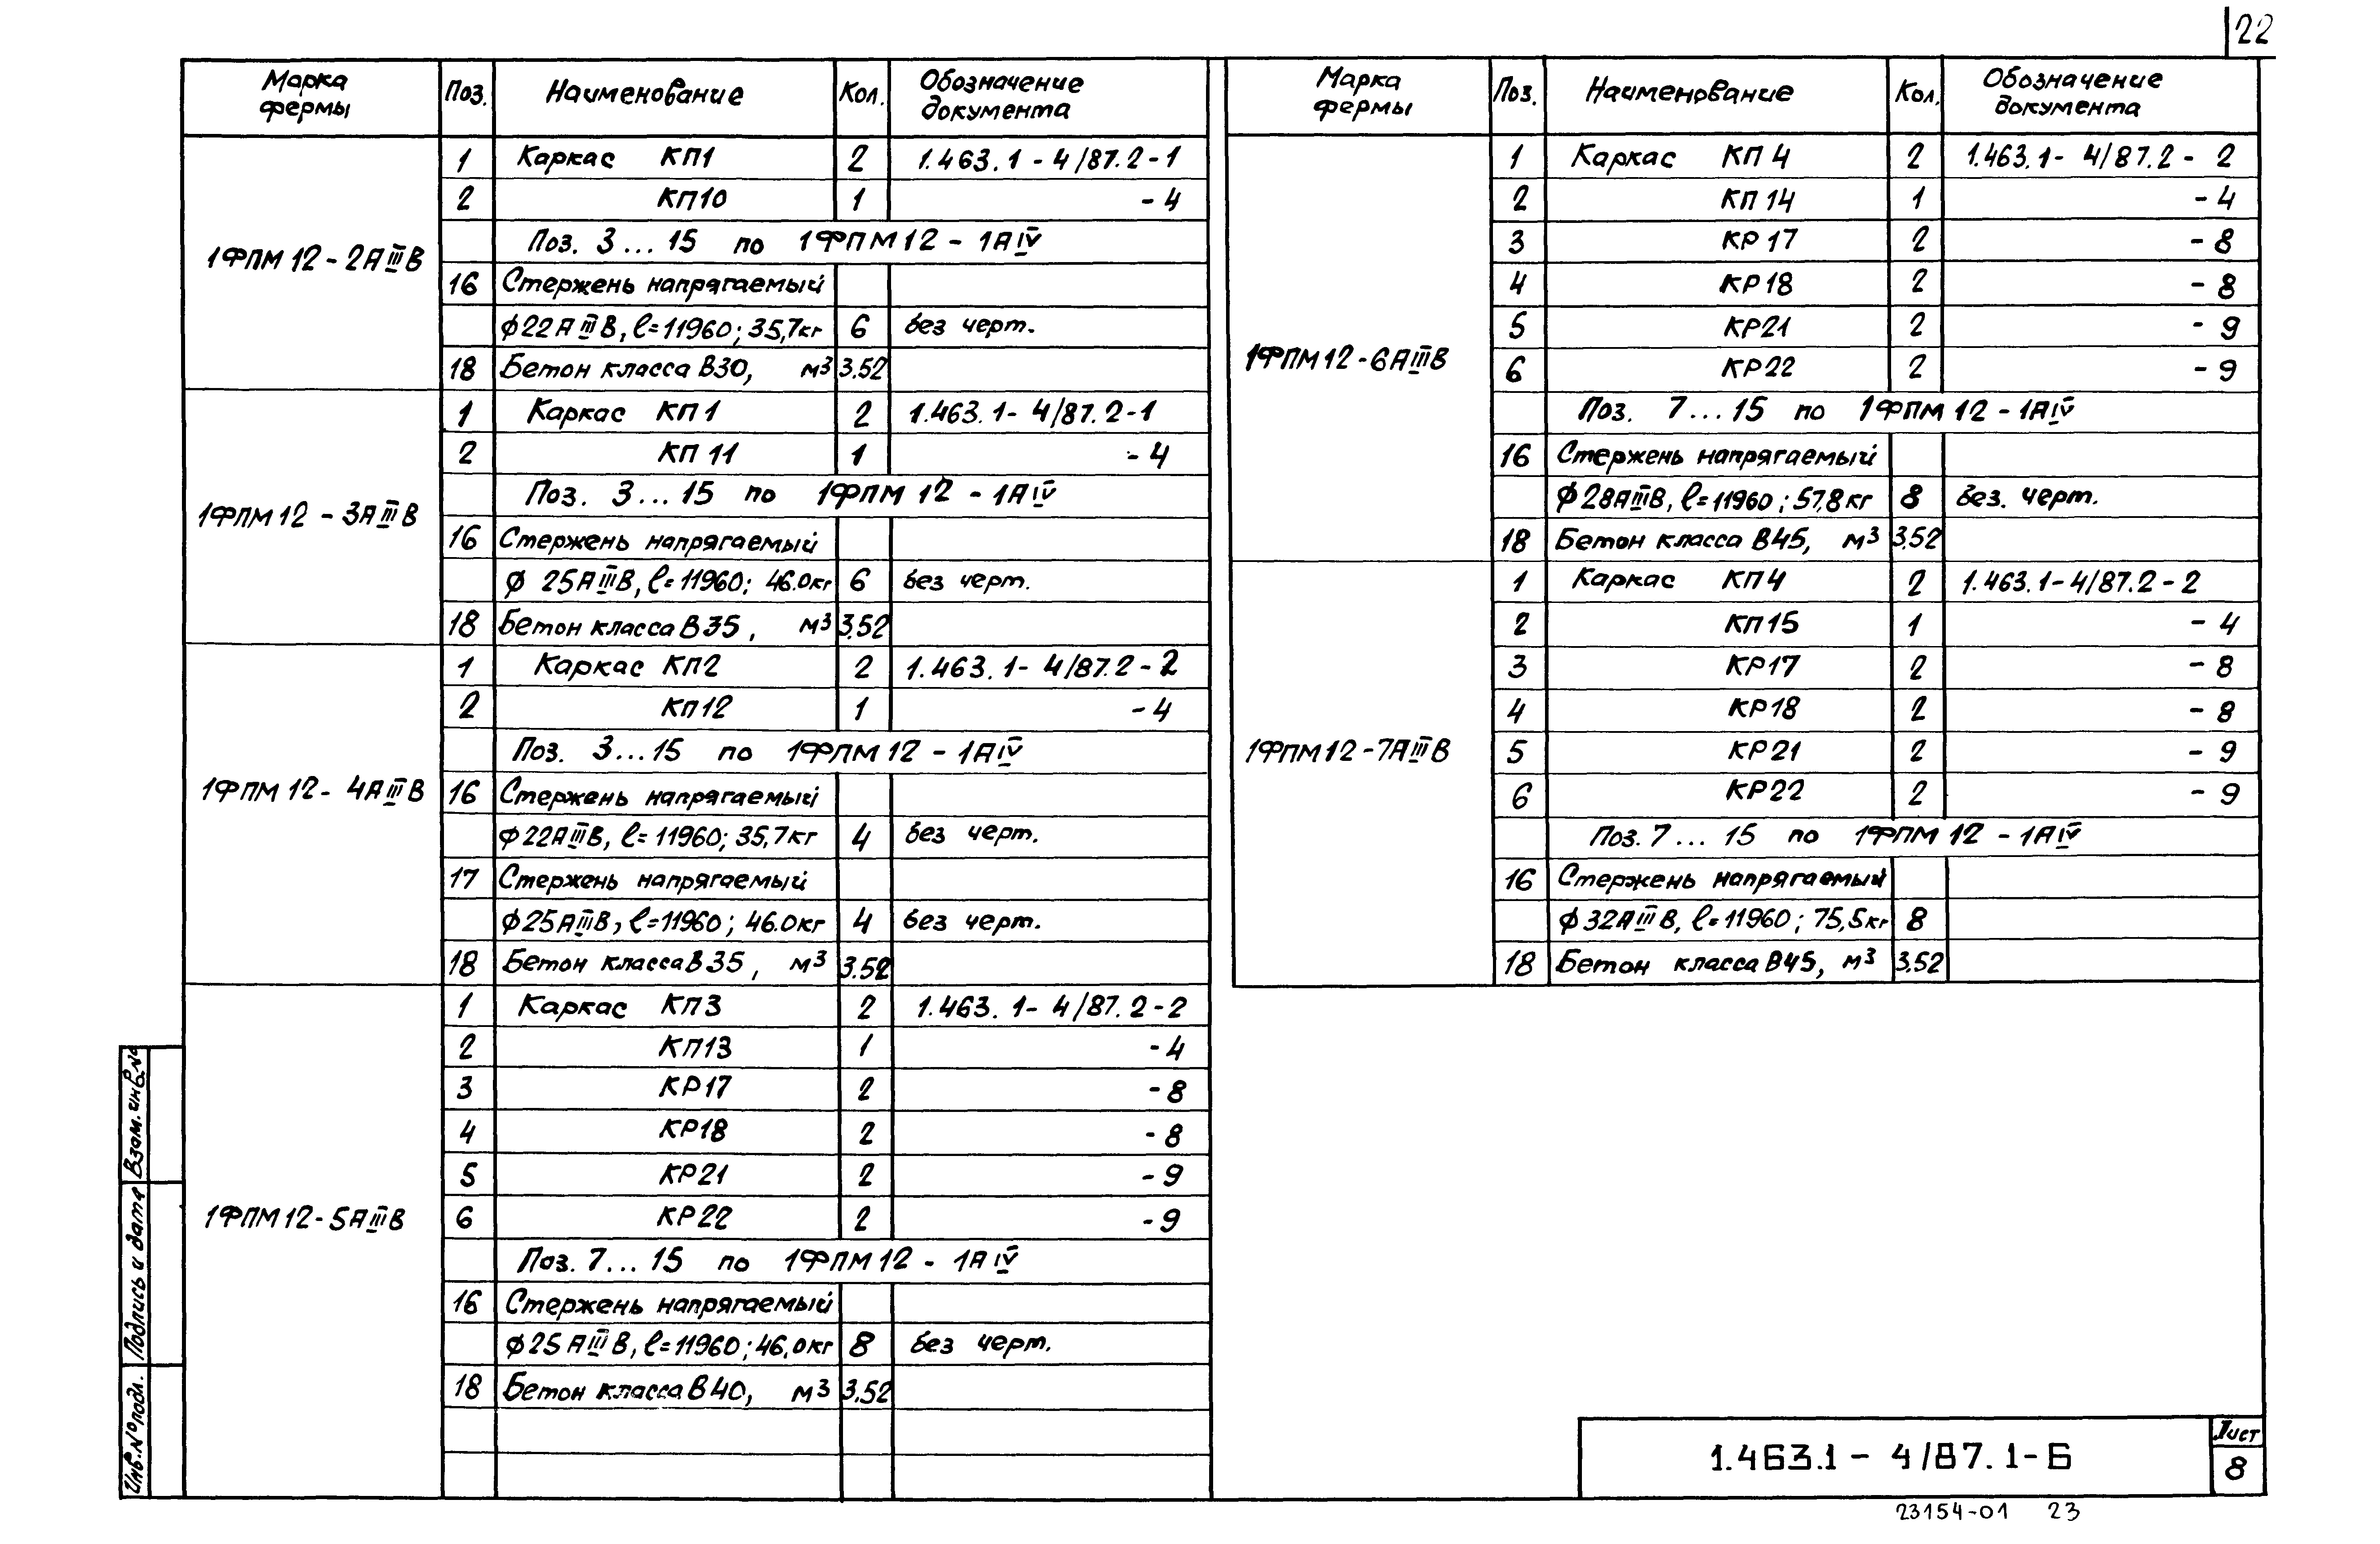 22
Марка фермы Поз. Наименование Кол. Обозначение документа
1ФПМ12-2АIIIВ
1 Каркас КП1 2 1.463.1-4/87.2-1
2 КП10 1 -4
Поз. 3...15 по 1ФПМ12-1АIV
16 Стержень напрягаемый
ф22АIIIВ, ℓ=11960; 35,7кг 6 без черт.
18 Бетон класса В30, м³ 3.52
1ФПМ12-3АIIIВ
1 Каркас КП1 2 1.463.1-4/87.2-1
2 КП11 1 -4
Поз. 3...15 по 1ФПМ12-1АIV
16 Стержень напрягаемый
ф 25АIIIВ, ℓ=11960; 46.0кг 6 без черт.
18 Бетон класса В35, м³ 3.52
1ФПМ12-4АIIIВ
1 Каркас КП2 2 1.463.1-4/87.2-2
2 КП12 1 -4
Поз. 3...15 по 1ФПМ12-1АIV
16 Стержень напрягаемый
ф22АIIIВ, ℓ=11960; 35,7кг 4 без черт.
17 Стержень напрягаемый
ф25АIIIВ, ℓ=11960; 46.0кг 4 без черт.
18 Бетон класса В35, м³ 3.52
1ФПМ12-5АIIIВ
1 Каркас КП3 2 1.463.1-4/87.2-2
2 КП13 1 -4
3 КР17 2 -8
4 КР18 2 -8
5 КР21 2 -9
6 КР22 2 -9
Поз. 7...15 по 1ФПМ12-1АIV
16 Стержень напрягаемый
ф25АIIIВ, ℓ=11960; 46.0кг 8 без черт.
18 Бетон класса В40, м³ 3.52
Марка фермы Поз. Наименование Кол. Обозначение документа
1ФПМ12-6АIIIВ
1 Каркас КП4 2 1.463.1-4/87.2-2
2 КП14 1 -4
3 КР17 2 -8
4 КР18 2 -8
5 КР21 2 -9
6 КР22 2 -9
Поз. 7...15 по 1ФПМ12-1АIV
16 Стержень напрягаемый
ф28АIIIВ, ℓ=11960; 57,8кг 8 без. черт.
18 Бетон класса В45, м³ 3.52
1ФПМ12-7АIIIВ
1 Каркас КП4 2 1.463.1-4/87.2-2
2 КП15 1 -4
3 КР17 2 -8
4 КР18 2 -8
5 КР21 2 -9
6 КР22 2 -9
Поз. 7...15 по 1ФПМ12-1АIV
16 Стержень напрягаемый
ф32АIIIВ, ℓ=11960; 75,5кг 8
18 Бетон класса В45, м³ 3.52
Взам. инв.№
Подпись и дата
Инв.№ подл.
1.463.1-4/87.1-Б
Лист
8
23154-01 23